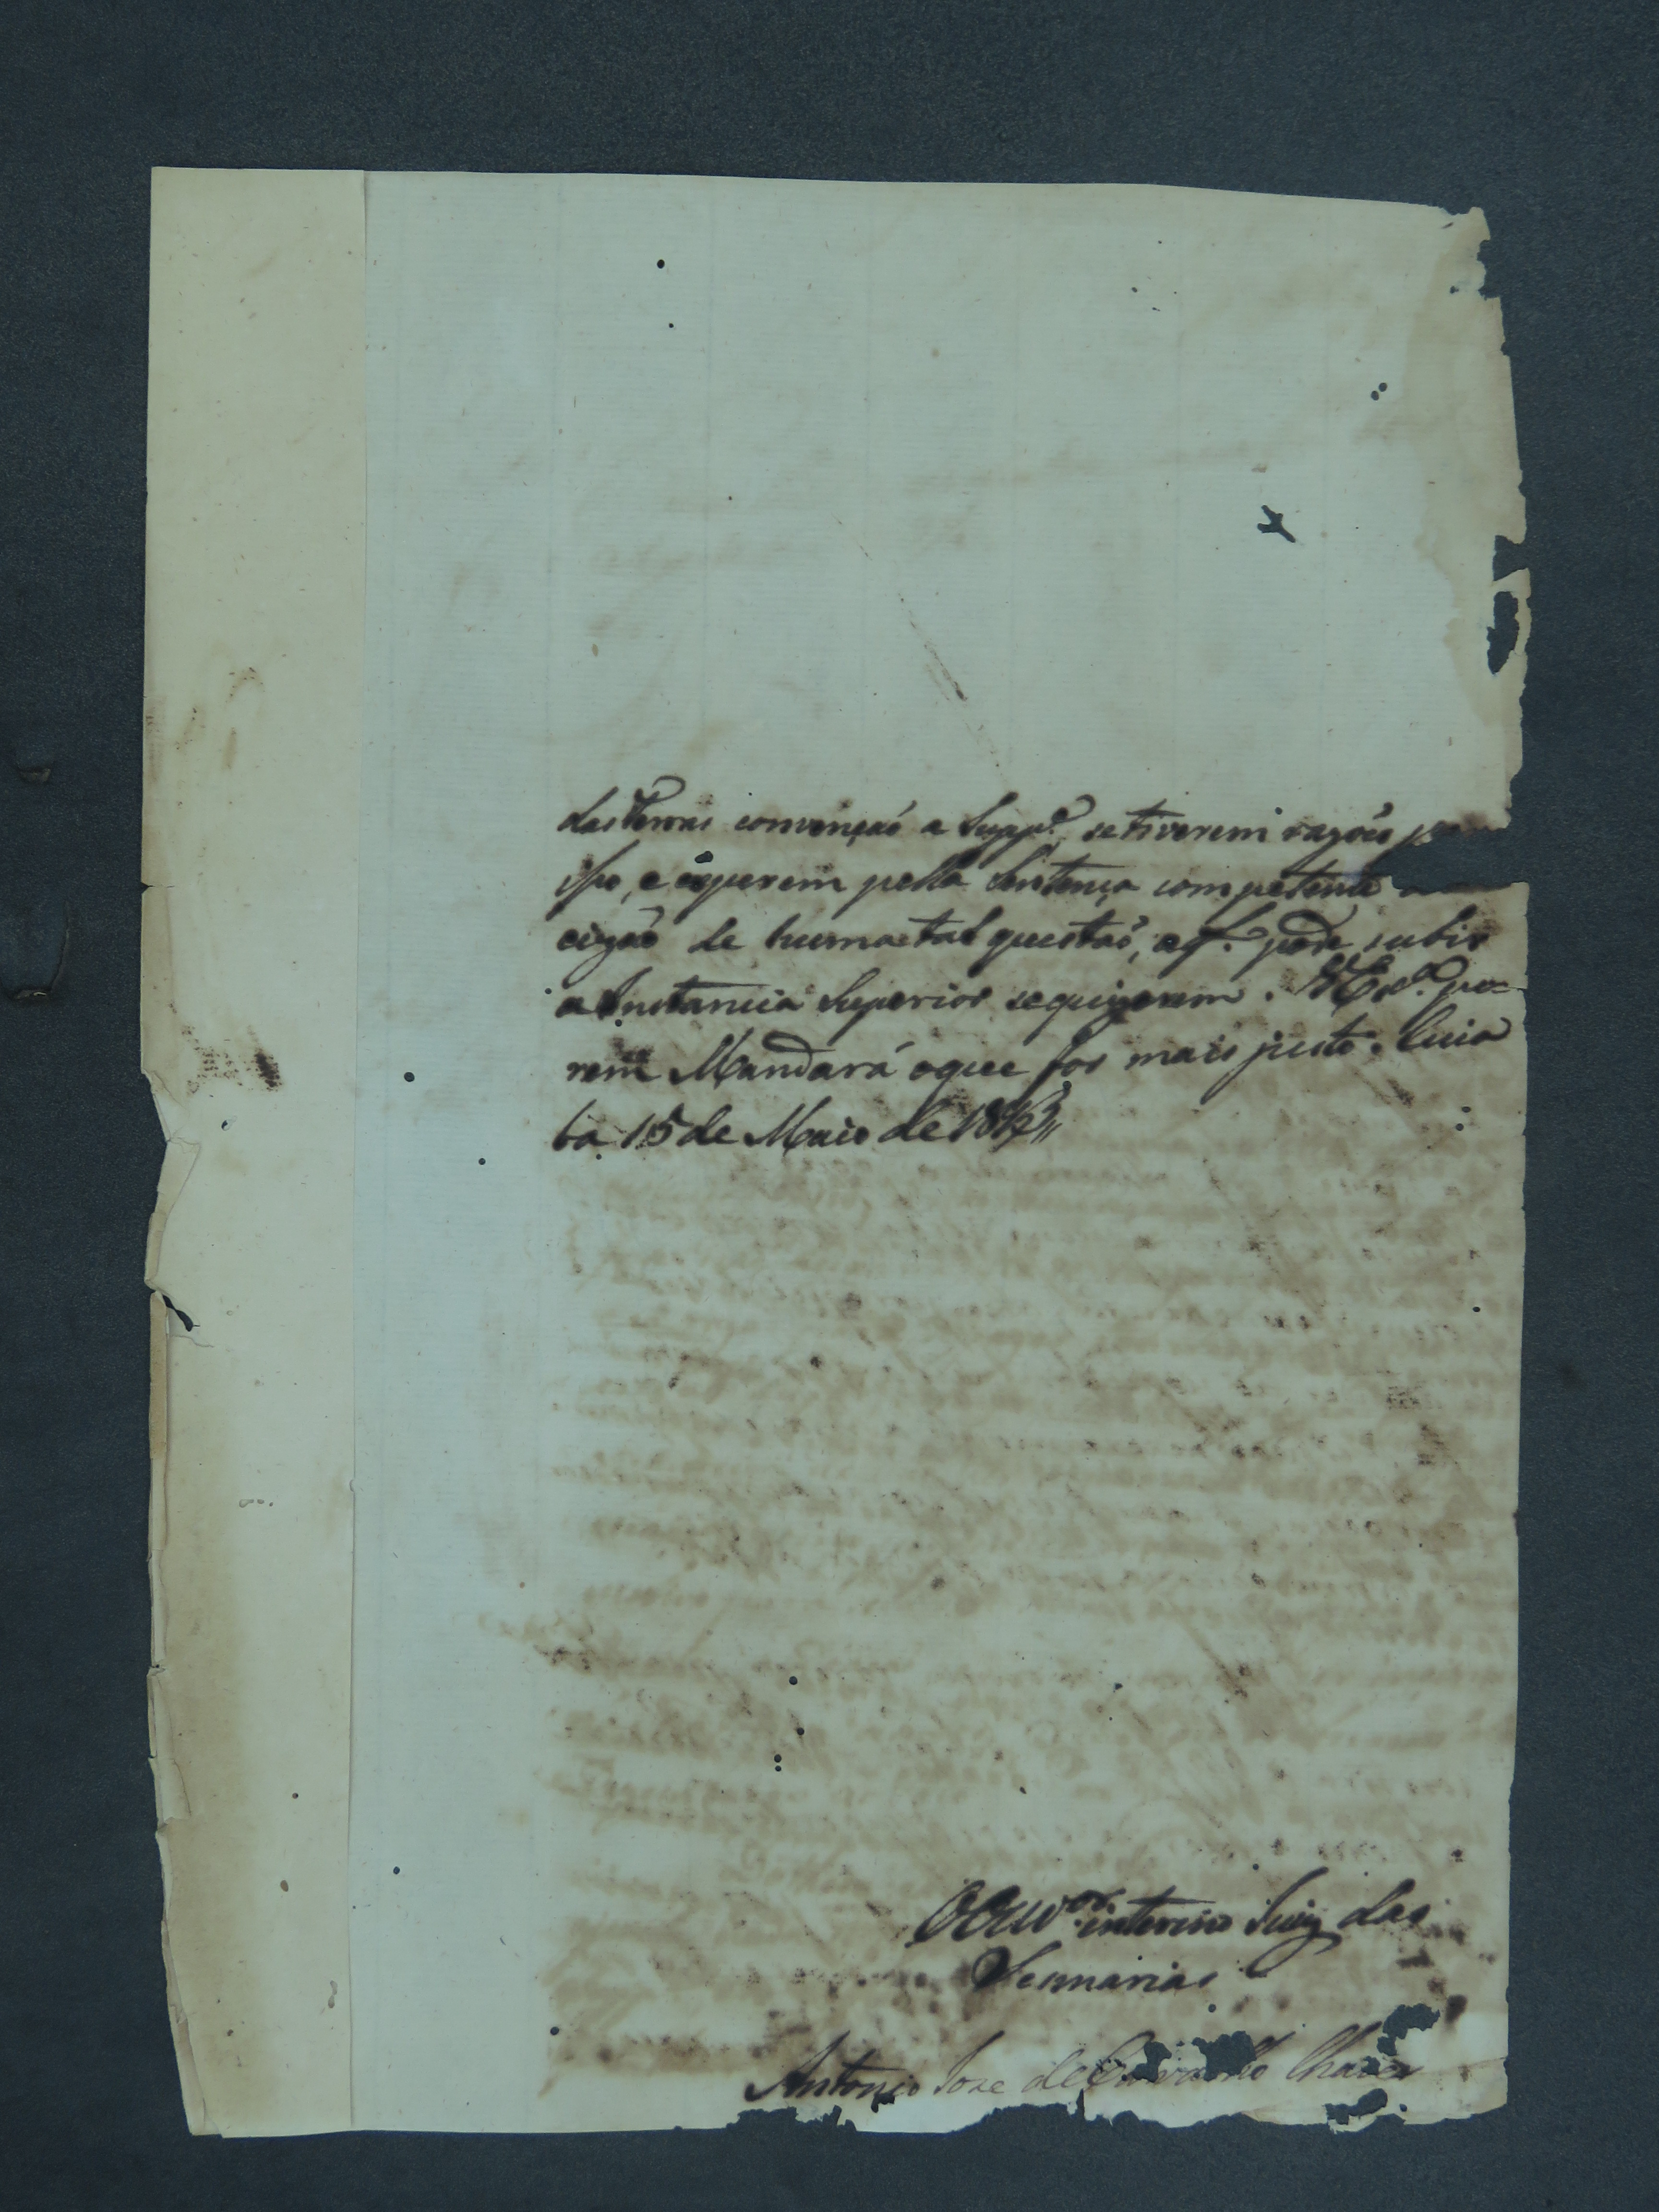 das terras convençaõ a Supp.e, se tiverem razoẽs
isso, e esperem pella Sentença competente
cizaõ de huma tal questaõ, a q.l pode subir
a Instancia Superior se quizerem. V Ex.a po=
rem Mandará o que for mais justo. Cuia
ba 15 de Maio de 181
O Ouv.or interino Juiz das
Sesmarias
Antonio Joze de Carvalho Chaves